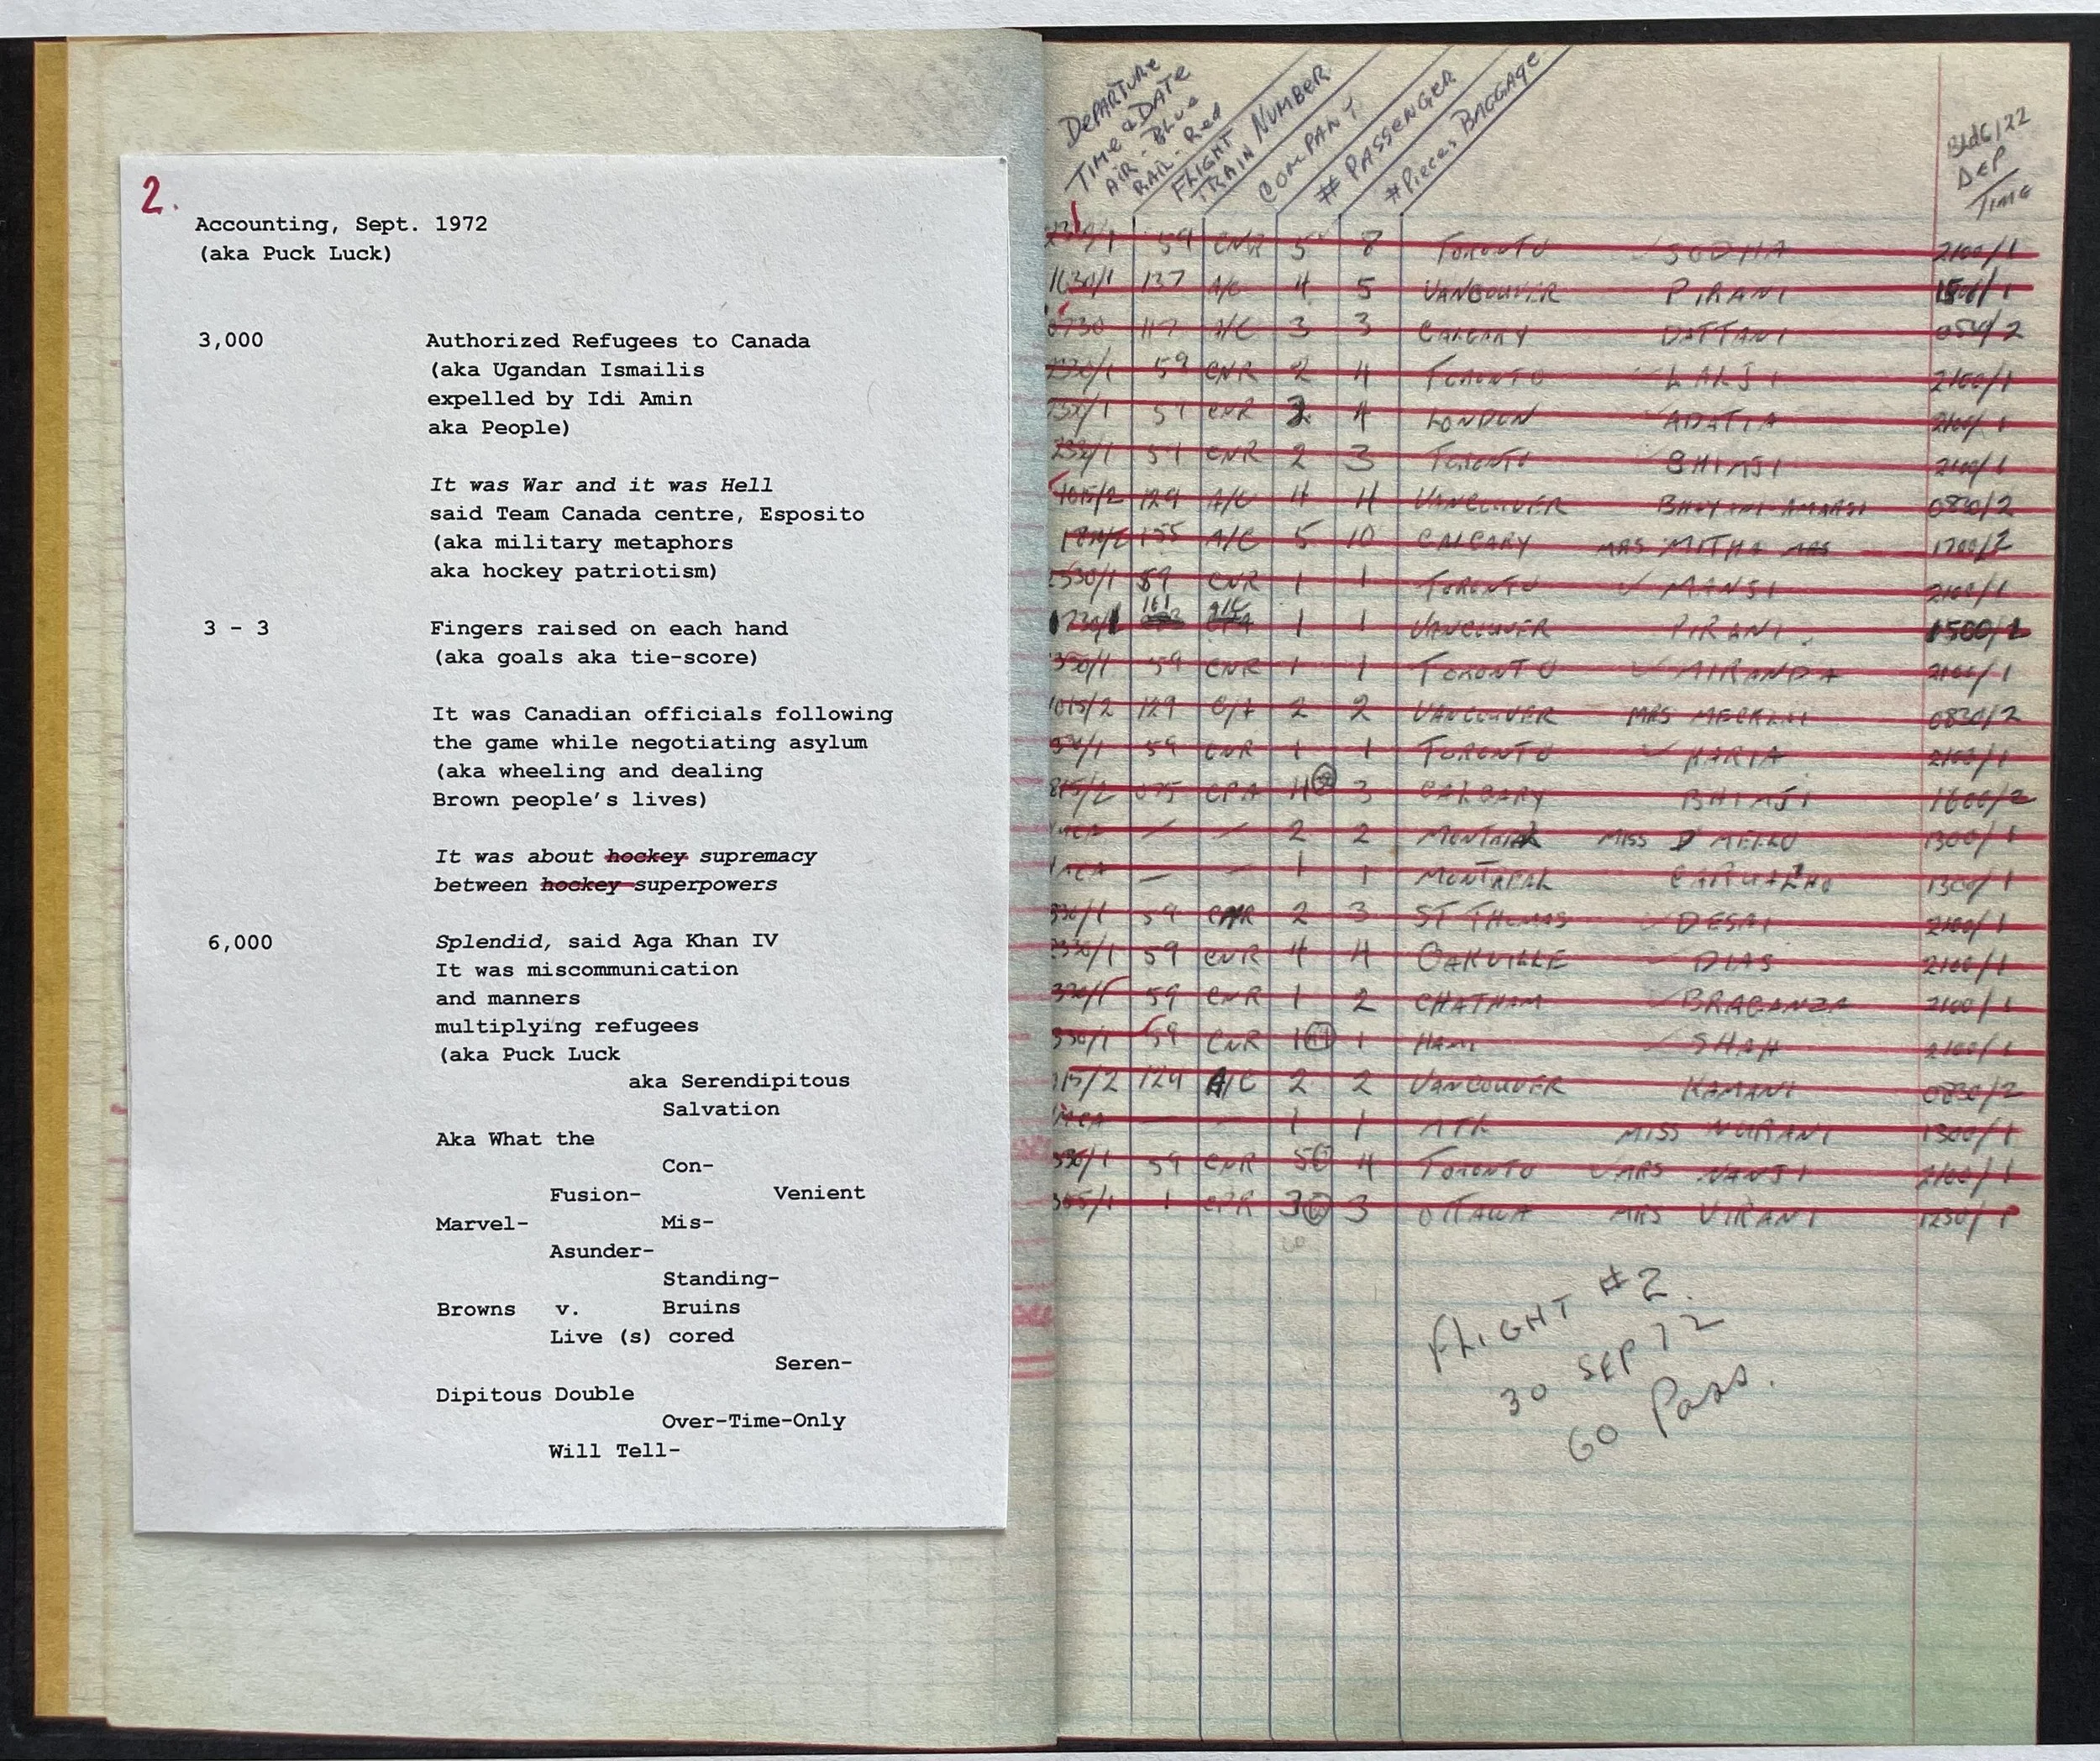 2.
Accounting, Sept. 1972
(aka Puck Luck)
3,000 Authorized Refugees to Canada
(aka Ugandan Ismailis
expelled by Idi Amin
aka People)
It was War and it was Hell
said Team Canada centre, Esposito
(aka military metaphors
aka hockey patriotism)
3 – 3 Fingers raised on each hand
(aka goals aka tie-score)
It was Canadian officials following
the game while negotiating asylum
(aka wheeling and dealing
Brown people's lives)
It was about hockey supremacy
between hockey superpowers
6,000 Splendid, said Aga Khan IV
It was miscommunication
and manners
multiplying refugees
(aka Puck Luck
aka Serendipitous
Salvation
Aka What the
Con-
Fusion- Venient
Marvel- Mis-
Asunder-
Standing-
Browns v. Bruins
Live (s) cored
Seren-
Dipitous Double
Over-Time-Only
Will Tell-
DEPARTURE
TIME & DATE
AIR - Blue
RAIL - Red
FLIGHT NUMBER
TRAIN
COMPANY
# PASSENGER
# Pieces BAGGAGE
Bldg 122
DEP
TIME
59 CNR 5 8 TORONTO SODHA 2100/1
1630/1 137 A/C 4 5 VANCOUVER PIRANI
117 A/C 3 3 CALGARY DATTANI
59 CNR 2 4 TORONTO LALJI 2100/1
59 CNR 4 LONDON ADATIA 2100/1
59 CNR 2 3 TORONTO BHIMJI 2100/1
1015/2 129 A/C 4 4 VANCOUVER 0830/2
155 A/C 5 10 CALGARY MRS MITHA MRS 1700/2
59 CNR 1 1 TORONTO MANJI 2100/1
161 A/C 1 1 VANCOUVER PIRANI
59 CNR 1 1 TORONTO MIRANDA 2100/1
1015/2 129 2 2 VANCOUVER MRS 0830/2
59 CNR 1 1 TORONTO KARIA 2100/1
CPA 4 3 CALGARY BHIMJI 1600/2
— — 2 2 MONTREAL MISS D MELLO 1300/1
— — 1 1 MONTREAL CARVALHO 1300/1
59 CNR 2 3 ST THOMAS DESAI 2100/1
2330/1 59 CNR 4 4 OAKVILLE DIAS 2100/1
59 CNR 1 2 CHATHAM BRAGANZA 2100/1
59 CNR 1 1 HAM. SHAH 2100/1
129 A/C 2 2 VANCOUVER KAMANI 0830/2
— — 1 1 MTR MISS NURANI 1300/1
59 CNR 5 4 TORONTO MRS NANJI 2100/1
1 CPR 3 3 OTTAWA MRS VIRANI 1230/1
60
FLIGHT #2.
30 SEP 72
60 Pass.